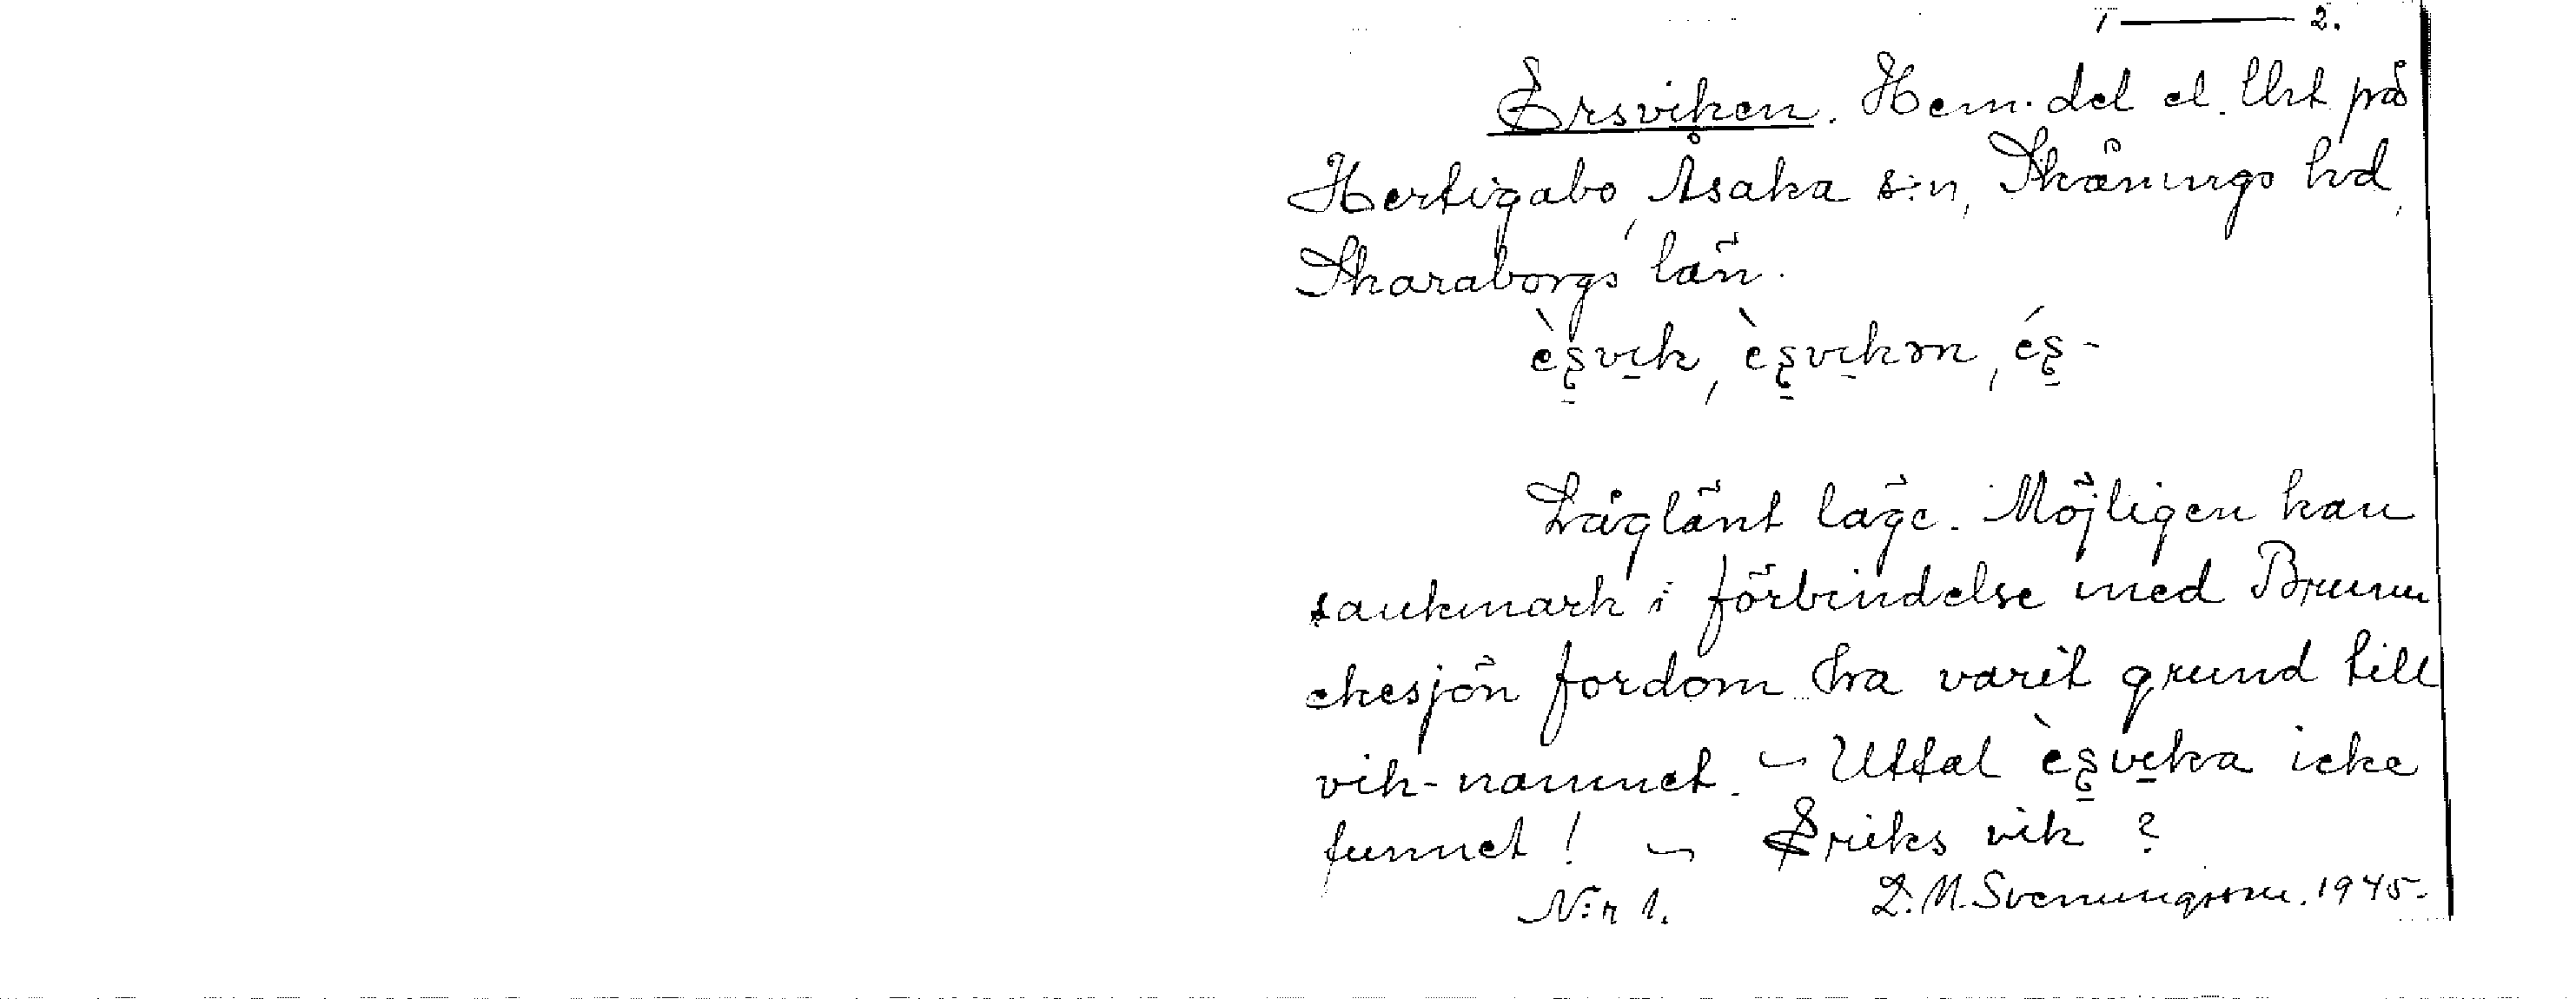 1 — 2.
Ersviken. Hem. del el. Urt på
Hertigabo, Åsaka s:n, Skånings hd,
Skaraborgs län.
èʂvik, èʂvikən, éʂ-
Låglänt läge. Möjligen kan
sankmark i förbindelse med Brunn
ekesjön fordom ha varit grund till
vik-namnet. ~ Uttal èʂvika icke
funnet! ~ Eriks vik?
N:r 1. L. M. Svenungsson. 1945.